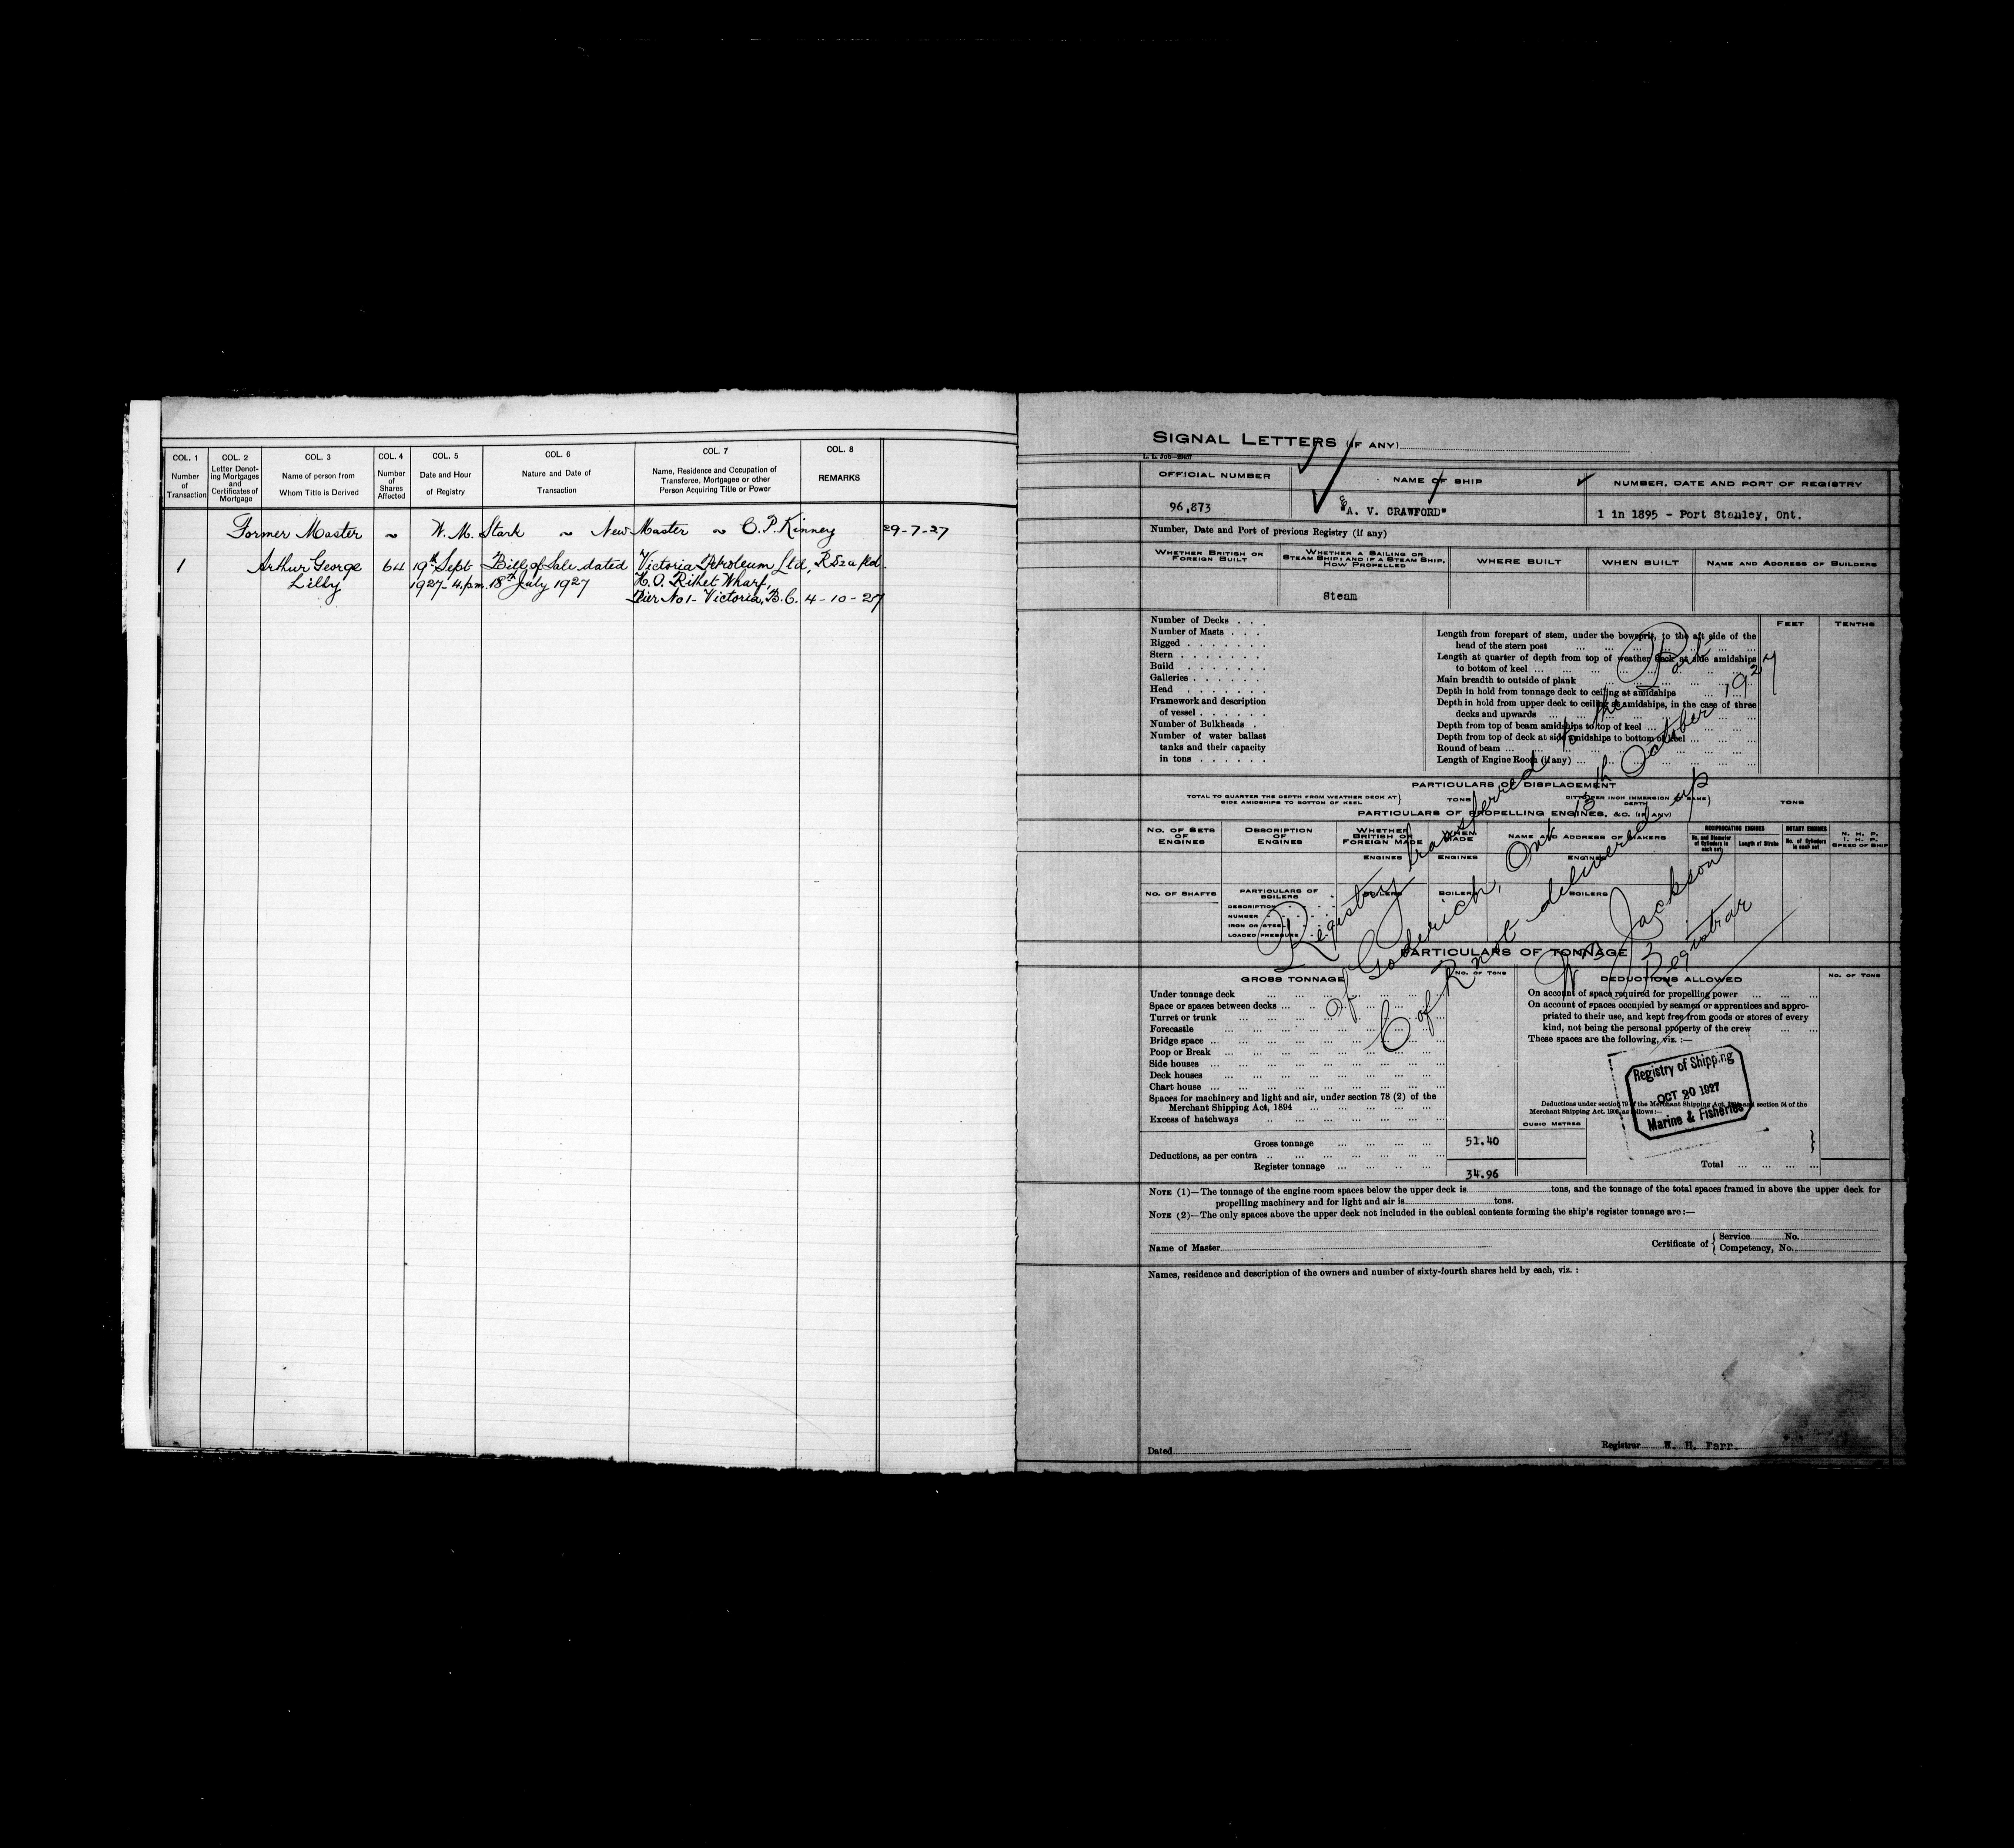 COL. 1 COL. 2 COL. 3 COL. 4 COL. 5 COL. 6 COL. 7 COL. 8
Number of Transaction
Letter Denoting Mortgages and Certificates of Mortgage
Name of person from Whom Title is Derived
Number of Shares Affected
Date and Hour of Registry
Nature and Date of Transaction
Name, Residence and Occupation of Transferee, Mortgagee or other Person Acquiring Title or Power
REMARKS
Former Master ~ W. M. Stark ~ New Master ~ C. P. Kinney 29-7-27
1 Arthur George 64 19th Sept Bill of Sale dated Victoria Petroleum Ltd,
Lilly 1927- 4.p.m. 18th July 1927 Wharf,
Pier No 1- Victoria, B.C. 4-10-27
SIGNAL LETTERS (IF ANY)
OFFICIAL NUMBER
NAME OF SHIP
NUMBER, DATE AND PORT OF REGISTRY
96,873
"A. V. CRAWFORD"
1 in 1895 - Port Stanley, Ont.
Number, Date and Port of previous Registry (if any)
WHETHER BRITISH OR FOREIGN BUILT
WHETHER A SAILING OR STEAM SHIP; AND IF A STEAM SHIP, HOW PROPELLED
WHERE BUILT
WHEN BUILT
NAME AND ADDRESS OF BUILDERS
Steam
Number of Decks . . .
Number of Masts . . .
Rigged
Stern
Build
Galleries
Head
Framework and description
of vessel
Number of Bulkheads .
Number of water ballast
tanks and their capacity
in tons
FEET TENTHS
Length from forepart of stem, under the bowsprit, to the aft side of the
head of the stern post
Length at quarter of depth from top of weather deck at side amidships
to bottom of keel
Main breadth to outside of plank
Depth in hold from tonnage deck to ceiling at amidships
Depth in hold from upper deck to ceiling at amidships, in the case of three
decks and upwards
Depth from top of beam amidships to top of keel
Depth from top of deck at side amidships to bottom of keel
Round of beam
Length of Engine Room (if any)
PARTICULARS OF DISPLACEMENT
TOTAL TO QUARTER THE DEPTH FROM WEATHER DECK AT SIDE AMIDSHIPS TO BOTTOM OF KEEL
TONS
DITTO PER INCH IMMERSION AT SAME DEPTH
TONS
PARTICULARS OF PROPELLING ENGINES, &C. (IF ANY)
NO. OF SETS OF ENGINES
DESCRIPTION OF ENGINES
WHETHER BRITISH OR FOREIGN MADE
WHEN MADE
NAME AND ADDRESS OF MAKERS
RECIPROCATING ENGINES
No. and Diameter of Cylinders in each set
Length of Stroke
ROTARY ENGINES
No. of Cylinders in each set
N. H. P.
I. H. P.
SPEED OF SHIP
ENGINES ENGINES ENGINES
NO. OF SHAFTS
PARTICULARS OF BOILERS
BOILERS BOILERS BOILERS
DESCRIPTION
NUMBER
IRON OR STEEL
LOADED PRESSURE
Registry transferred to the Port
of Goderich, Ont 13th October 1927
C of R not delivered up
Jackson
Registrar
PARTICULARS OF TONNAGE
GROSS TONNAGE
NO. OF TONS
DEDUCTIONS ALLOWED
NO. OF TONS
Under tonnage deck
Space or spaces between decks
Turret or trunk
Forecastle
Bridge space
Poop or Break
Side houses
Deck houses
Chart house
Spaces for machinery and light and air, under section 78 (2) of the
Merchant Shipping Act, 1894
Excess of hatchways
On account of space required for propelling power
On account of spaces occupied by seamen or apprentices and appro-
priated to their use, and kept free from goods or stores of every
kind, not being the personal property of the crew
These spaces are the following, viz. :—
Registry of Shipping
OCT 20 1927
Marine & Fisheries
Deductions under section 79 of the Merchant Shipping Act, and section 54 of the
Merchant Shipping Act, 1906, as follows:—
CUBIC METRES
Gross tonnage 51.40
Deductions, as per contra
Register tonnage 34.96
Total
NOTE (1)—The tonnage of the engine room spaces below the upper deck is tons, and the tonnage of the total spaces framed in above the upper deck for
propelling machinery and for light and air is tons.
NOTE (2)—The only spaces above the upper deck not included in the cubical contents forming the ship's register tonnage are :—
Name of Master
Certificate of { Service No.
Competency, No.
Names, residence and description of the owners and number of sixty-fourth shares held by each, viz. :
Dated
Registrar W. H. Farr.